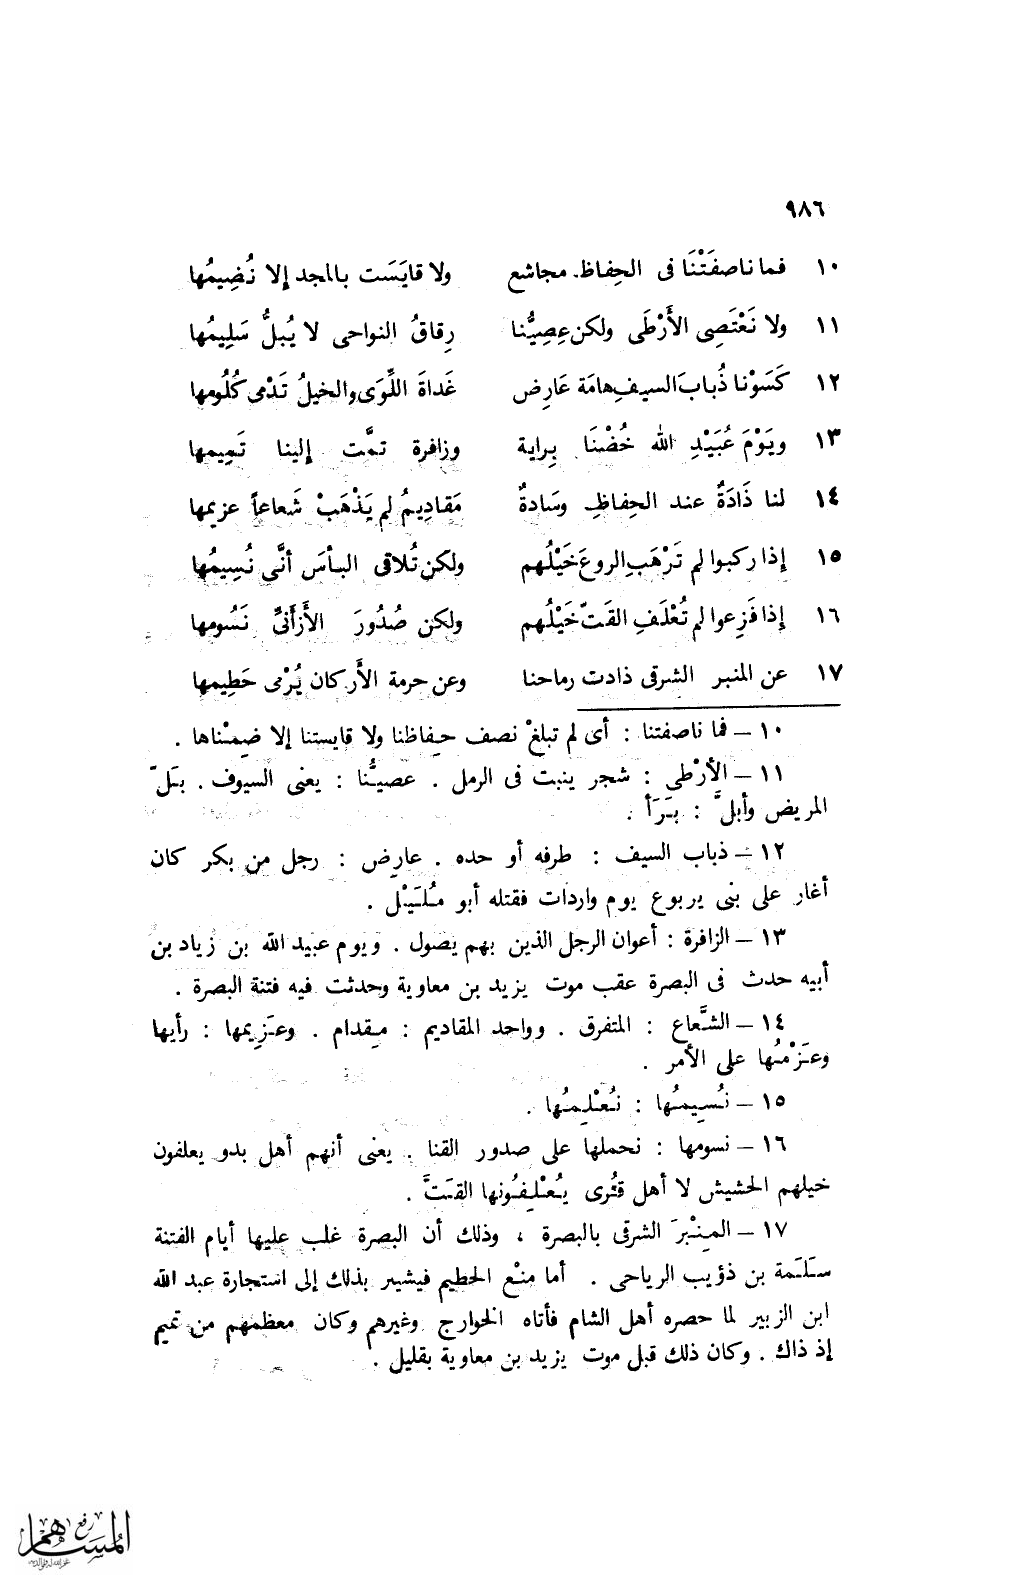 ٩٨٦
١٠ فما ناصفَتْنَا فى الحِفاظ مجاشع ولا قايَسَت بالمجد إلا نُضِيمُها
١١ ولا نَعْتَصِى الأَرْطَى ولكن عِصِيُّنا رِقاقُ النواحى لا يُبلُّ سَلِيمُها
١٢ كَسَوْنا ذُبابَ السيفِ هامَة عَارِض غَداةَ اللِّوَى والخيلُ تَدْمى كُلُومها
١٣ ويَوْمَ عُبَيْدِ الله خُضْنَا بِراية وزافرة تمَّت إلينا تَمِيمها
١٤ لنا ذَادَةٌ عند الحِفاظِ وسَادةٌ مَقادِيمُ لم يَذْهَبْ شَعاعاً عزيمها
١٥ إذا ركبوا لم تَرْهَبِ الروعَ خَيْلُهم ولكن تُلاقى البأسَ أنَّى نُسِيمُها
١٦ إذا فَزِعوا لم تُعْلَفِ القَتّ خَيْلُهم ولكن صُدُورَ الأَزَأَنىِّ نَسُومها
١٧ عن المنبر الشرقى ذادت رماحنا وعن حرمة الأَركان يُرْمى حَطِيمها
١٠ – فما ناصفتنا : أى لم تبلغْ نصف حِفاظنا ولا قايستنا إلا ضِمْناها .
١١ – الأرْطى : شجر ينبت فى الرمل . عصيُّنا : يعنى السيوف . بَلّ
المريض وأبلَّ : بَرَأ .
١٢ – ذباب السيف : طرفه أو حده . عارِض : رجل من بكر كان
أغار على بنى يربوع يوم واردات فقتله أبو مُلَيْل .
١٣ – الزافرة : أعوان الرجل الذين بهم يصول . ويوم عبيد الله بن زياد بن
أبيه حدث فى البصرة عقب موت يزيد بن معاوية وحدثت فيه فتنة البصرة .
١٤ – الشَّعاع : المتفرق . وواحد المقاديم : مِقدام . وعَزِيمها : رأيها
وعَزْمُها على الأمر .
١٥ – نُسِيمُها : نُعْلِمُها .
١٦ – نسومها : نحملها على صدور القنا . يعنى أنهم أهل بدو يعلفون
خيلهم الحشيش لا أهل قُرى يُعْلِفُونها القتَّ .
١٧ – المِنْبَر الشرقى بالبصرة ، وذلك أن البصرة غلب عليها أيام الفتنة
سَلَمة بن ذؤيب الرياحى . أما مِنْع الحطيم فيشير بذلك إلى استجارة عبد الله
ابن الزبير لما حصره أهل الشام فأتاه الخوارج وغيرهم وكان معظمهم من تميم
إذ ذاك . وكان ذلك قبل موت يزيد بن معاوية بقليل .
رفع
المساهم